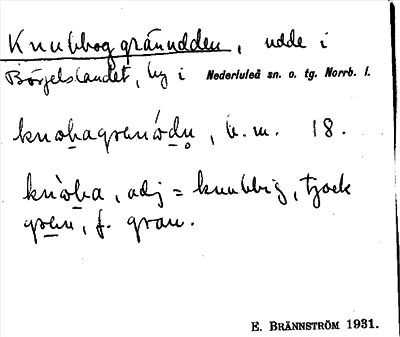 Knubboggränudden, udde i
Börjelslandet, by i Nederluleå sn. o. tg. Norrb. l.
knäbagrenúdu, b.m. 18.
knàba, adj = knubbig, tjock
gren, f. gran.
E. BRÄNNSTRÖM 1931.